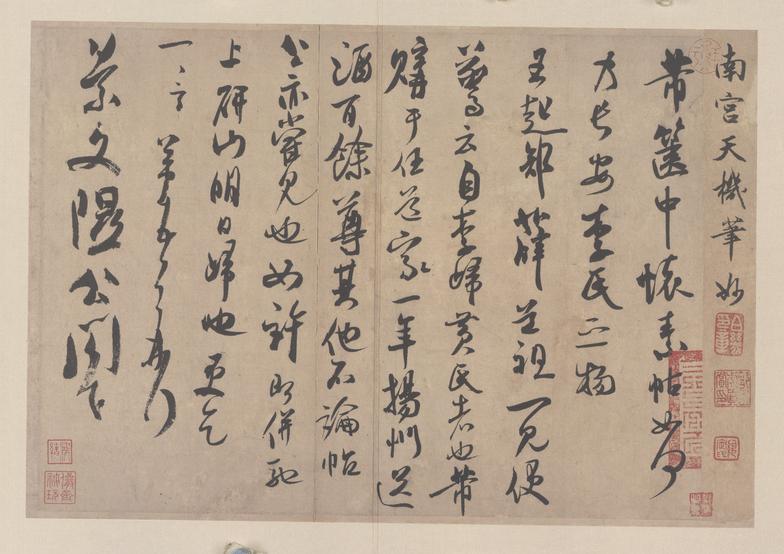 南宮天機筆妙
芾篋中懷素帖如何
乃長安李氏之物
王起部薛道祖一見便
驚云自李歸黃氏者也芾
購于任道家一年揚州送
酒百餘尊其他不論帖
公亦嘗見也如許即併馳
上研山明日歸也更乞
一一言芾頓首再拜
景文隰公閣下